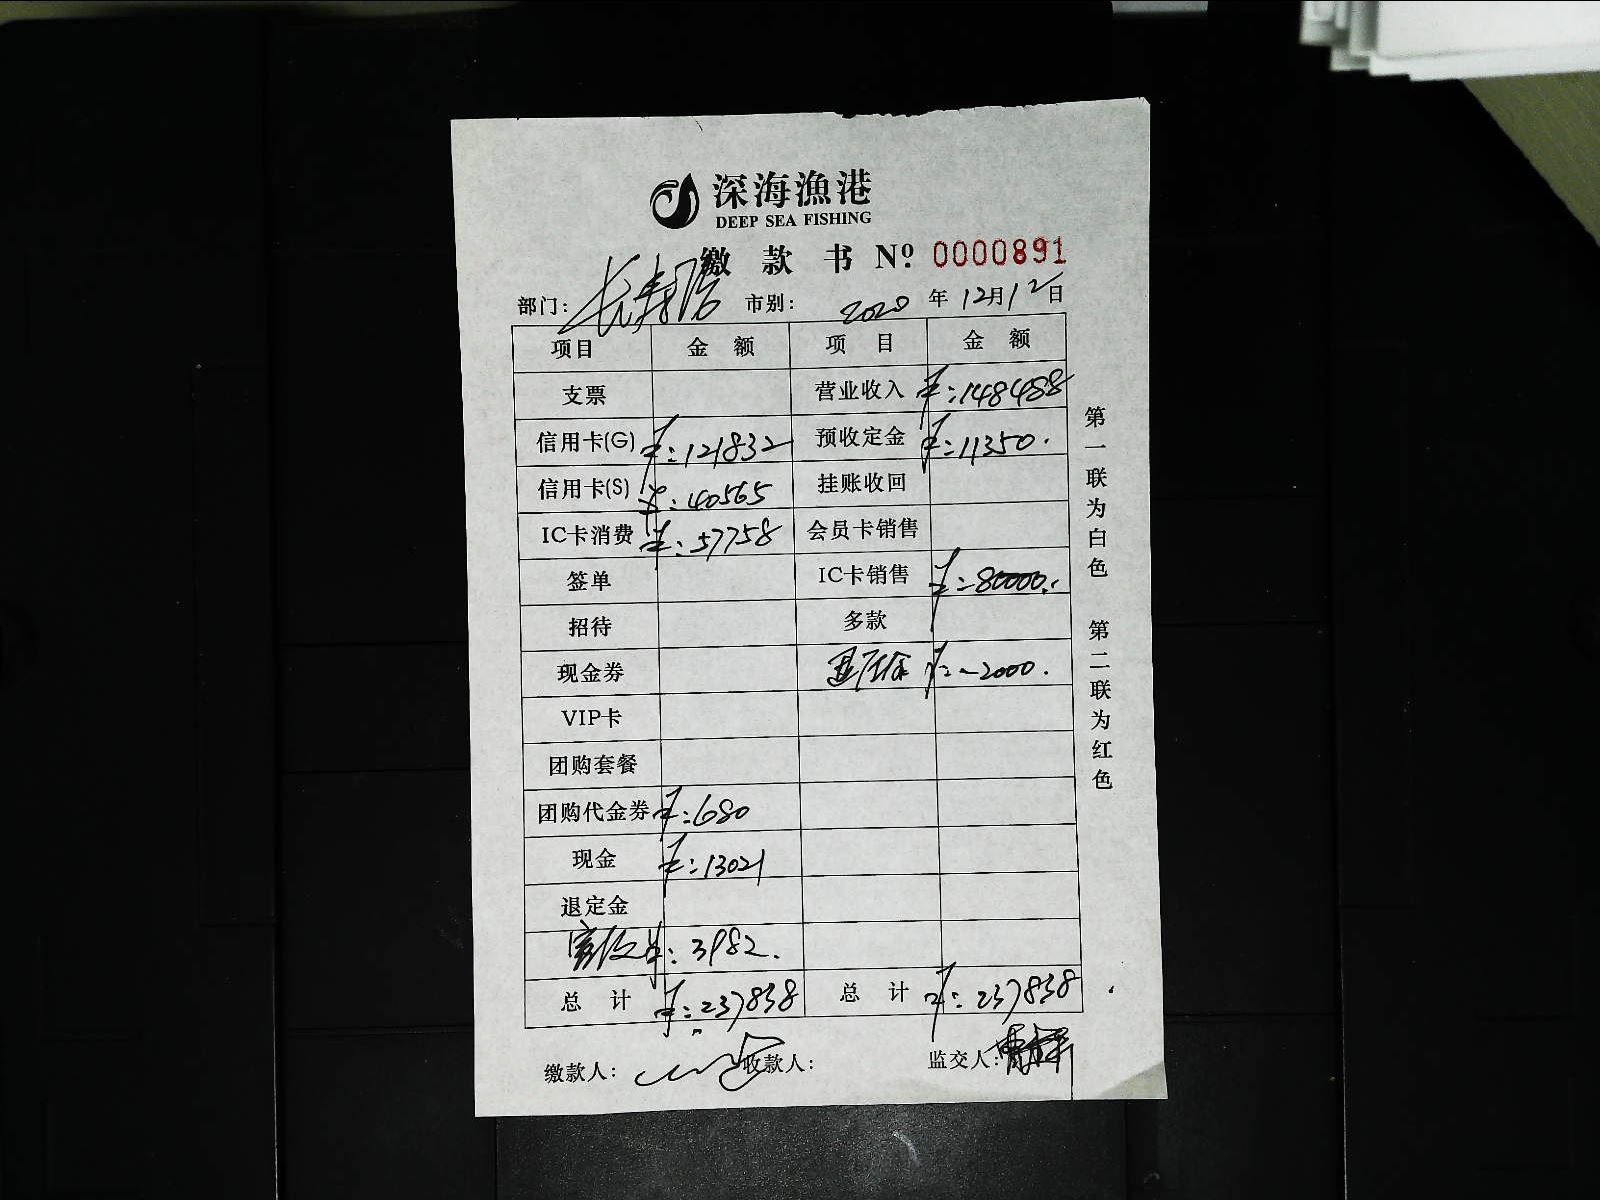 深海漁港
DEEP SEA FISHING
缴 款 书 Nº 0000891
部门: 长寿路 市别: 2020 年 12月12日
项目 金 额 项 目 金 额
支票 营业收入 ¥:148488
信用卡(G) ¥:121832 预收定金 ¥:11350.
信用卡(S) ¥:40565 挂账收回
IC卡消费 ¥:57758 会员卡销售
签单 IC卡销售 ¥:80000.
招待 多款
现金券 ¥:-2000.
VIP卡
团购套餐
团购代金券 ¥:680
现金 ¥:13021
退定金
: 3982.
总 计 ¥:237838 总 计 ¥:237838
缴款人: 收款人: 监交人:
第一联为白色 第二联为红色